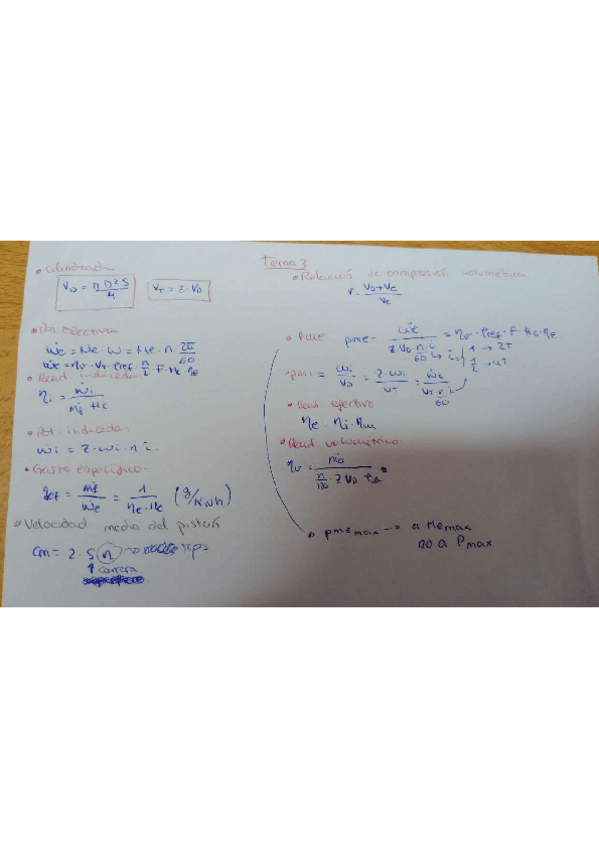 Tema 3
• Cilindrada
V_D = π D² S / 4    V_T = z · V_D
• Pot efectiva
Ẇe = Me · ω = Me · n · 2π/60
Ẇe = ηv · V_T · ρref · n/2 · F · Hc · ηe
• Rend indicado
ηi = Ẇi / (ṁf Hc)
• Pot. indicada:
Ẇi = z · Wi · n i.
• Gasto específico.
gef = ṁf / Ẇe = 1 / (ηe · Hc) (g/kWh)
• Velocidad media del pistón
Cm = 2 · S n → rps
↑ carrera
• Relación de compresión volumétrica
r = (V_D + Vc) / Vc
• Pme pme = Ẇe / (z · V_D · n/60 · i) = ηv · ρref · F · Hc · ηe
i 1 → 2T
1/2 → 4T
• pmi = Wi / V_D = z · Wi / V_T = Ẇi / (V_T · n/60 · i)
• Rend efectivo
ηe = ηi · ηm
• Rend volumétrico
ηv = ṁa / (n/120 · z V_D ρa)
• pme max → a Me max
no a P max